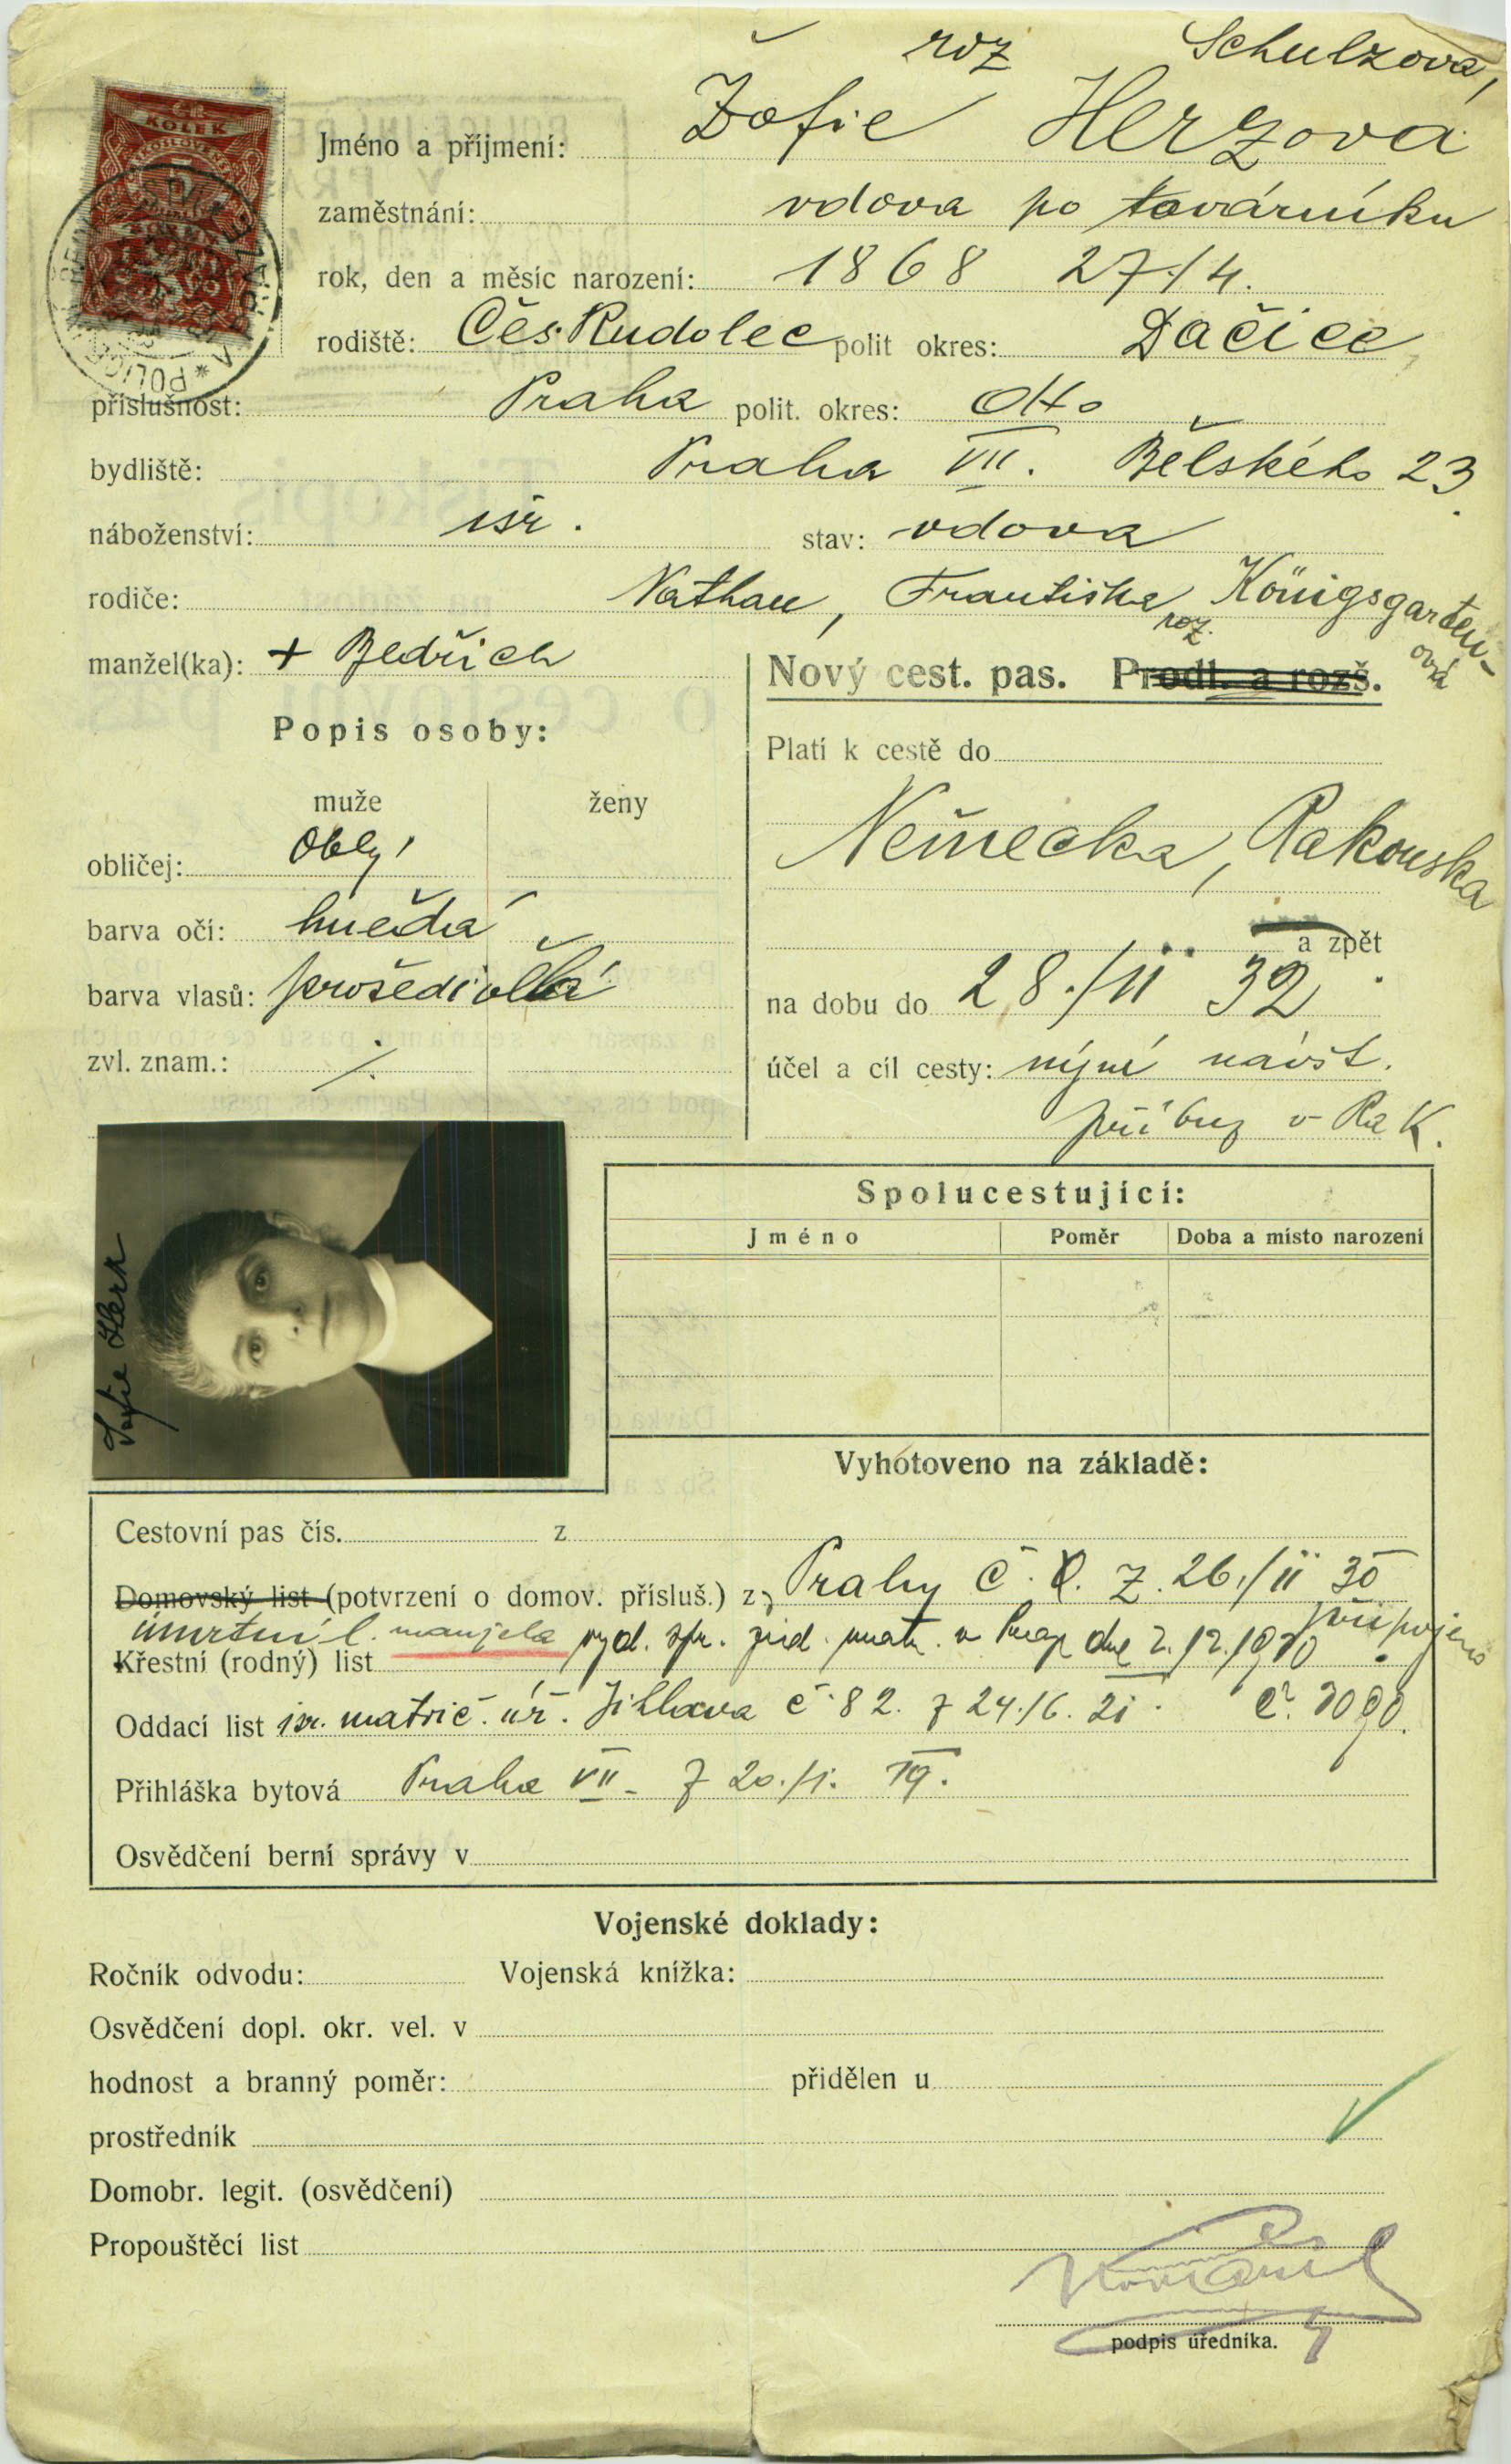 roz Schulzova,
Jméno a příjmení: Žofie Herzova
zaměstnání: vdova po továrníku
rok, den a měsíc narození: 1868 27./4.
rodiště: Čes. Rudolec polit okres: Dačice
příslušnost: Praha polit. okres: dtto
bydliště: Praha VII. Bělského 23.
náboženství: isr. stav: vdova
rodiče: Nathan, Františka roz. Königsgarten-
ová
manžel(ka): + Bedřich
Nový cest. pas. Prodl. a rozš.
Popis osoby:
muže ženy
obličej: Oblý
barva očí: hnědá
barva vlasů: prošedivělá
zvl. znam.: /.
Platí k cestě do
Německa, Rakouska
a zpět
na dobu do 28./11 32.
účel a cíl cesty: nyní návšt.
příbuz v Rak.
KOLEK
Sofie Herz
Spolucestující:
Jméno Poměr Doba a místo narození
Vyhotoveno na základě:
Cestovní pas čís. z
Domovský list (potvrzení o domov. přísluš.) z Prahy č. z. 26./11 30
úmrtní l. manžela vyd. spr. žid. matr. v Praze dne 2./12./1930 připojeno
Křestní (rodný) list
Oddací list isr. matrič. úř. Jihlava č. 82. z 24./6. 21. č. 3090.
Přihláška bytová Praha VII. z 20./1. 19.
Osvědčení berní správy v
Vojenské doklady:
Ročník odvodu: Vojenská knížka:
Osvědčení dopl. okr. vel. v
hodnost a branný poměr: přidělen u
prostředník
Domobr. legit. (osvědčení)
Propouštěcí list
podpis úředníka.